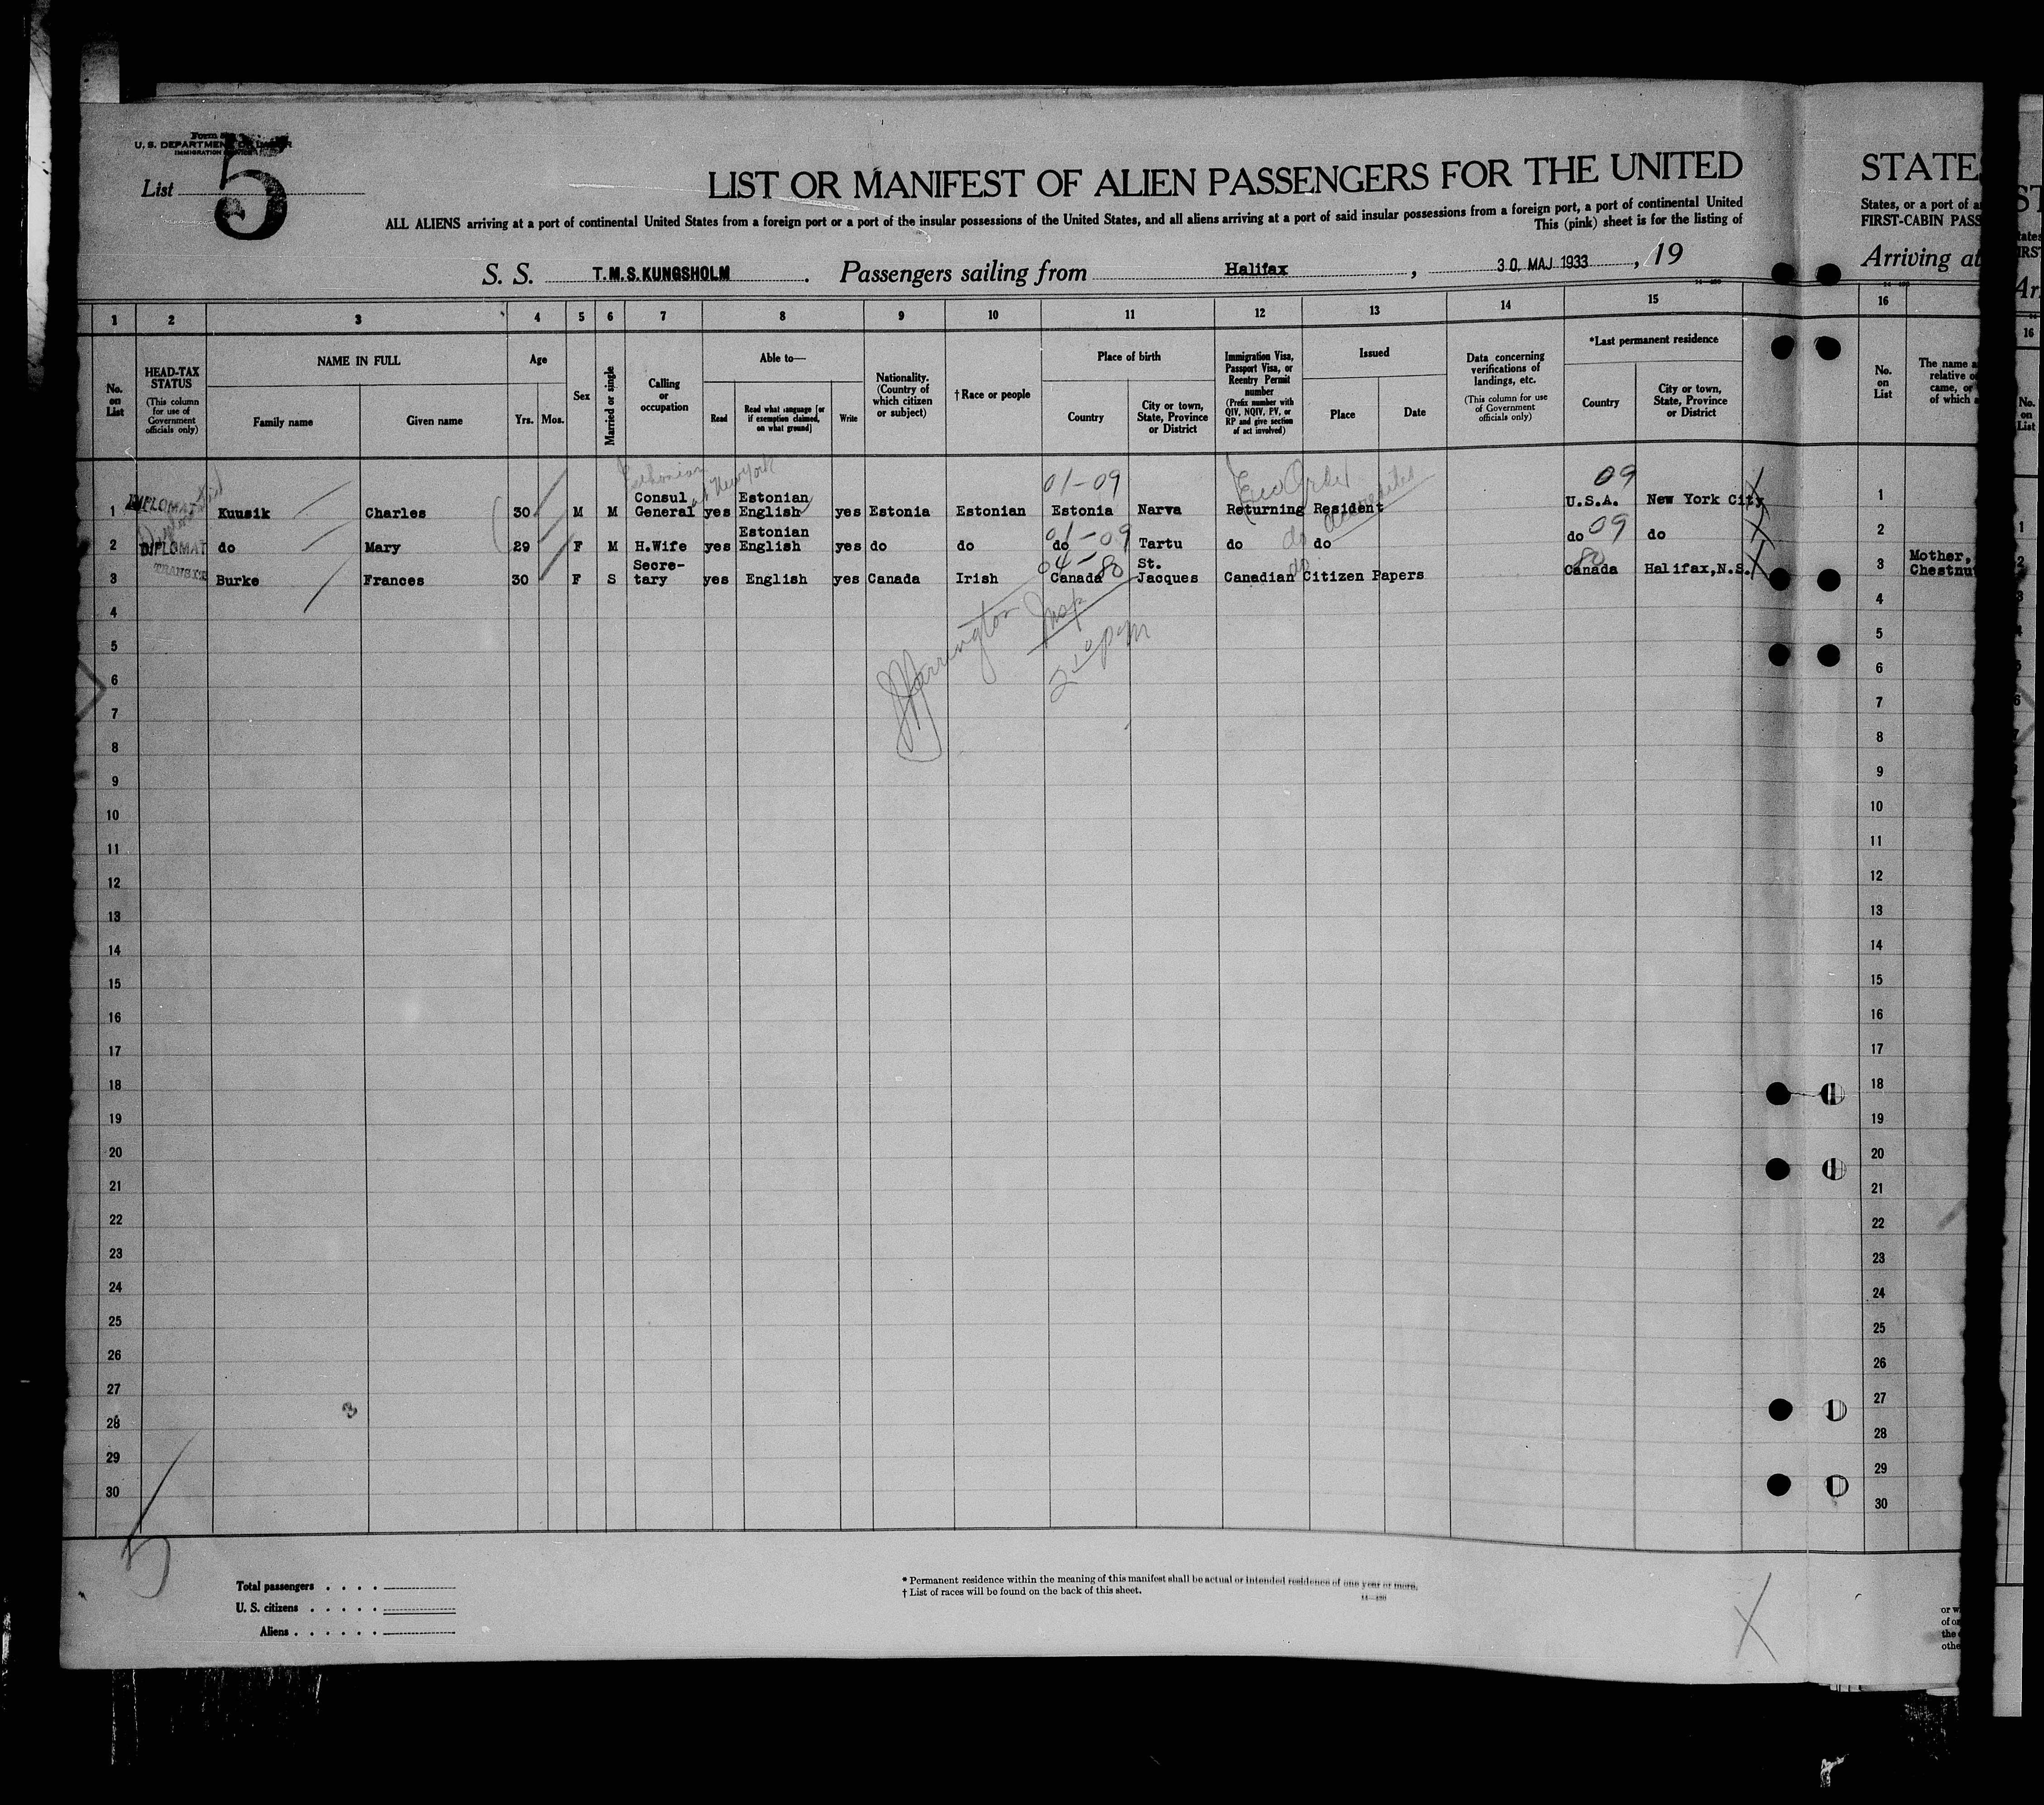 U. S. DEPARTMENT OF LABOR
List 5
LIST OR MANIFEST OF ALIEN PASSENGERS FOR THE UNITED
ALL ALIENS arriving at a port of continental United States from a foreign port or a port of the insular possessions of the United States, and all aliens arriving at a port of said insular possessions from a foreign port, a port of continental United
This (pink) sheet is for the listing of
S. S. T.M.S.KUNGSHOLM. Passengers sailing from Halifax, 30. MAJ 1933, 19
1 2 3 4 5 6 7 8 9 10 11 12 13 14 15
No. on List
HEAD-TAX STATUS
(This column for use of Government officials only)
NAME IN FULL
Family name
Given name
Age
Yrs. Mos.
Sex
Married or single
Calling or occupation
Able to—
Read
Read what language [or if exemption claimed, on what ground]
Write
Nationality. (Country of which citizen or subject)
†Race or people
Place of birth
Country
City or town, State, Province or District
Immigration Visa, Passport Visa, or Reentry Permit number
(Prefix number with QIV, NQIV, PV, or RP and give section of act involved)
Issued
Place
Date
Data concerning verifications of landings, etc.
(This column for use of Government officials only)
*Last permanent residence
Country
City or town, State, Province or District
Esthonian
at New York
01-09
Exec Order
accredited
09
1 DIPLOMAT Kuusik Charles 30 M M Consul General yes Estonian English yes Estonia Estonian Estonia Narva Returning Resident U.S.A. New York City
01-09
do
09
2 DIPLOMAT do Mary 29 F M H.Wife yes Estonian English yes do do do Tartu do do do do
TRANSIT
04-80
do
80
3 Burke Frances 30 F S Secre-tary yes English yes Canada Irish Canada St. Jacques Canadian Citizen Papers Canada Halifax,N.S.
Harrington Insp
2 10 pm
4
5
6
7
8
9
10
11
12
13
14
15
16
17
18
19
20
21
22
23
24
25
26
27
28
29
30
3
5
Total passengers . . . .
U. S. citizens . . . . .
Aliens . . . . . .
* Permanent residence within the meaning of this manifest shall be actual or intended residence of one year or more.
† List of races will be found on the back of this sheet.
X
STATE
States, or a port of a
FIRST-CABIN PASS
Arriving at
16
No. on List
The name a
relative o
came, or
of which a
1
2
3 Mother,
Chestnu
4
5
6
7
8
9
10
11
12
13
14
15
16
17
18
19
20
21
22
23
24
25
26
27
28
29
30
or w
of o
the
othe